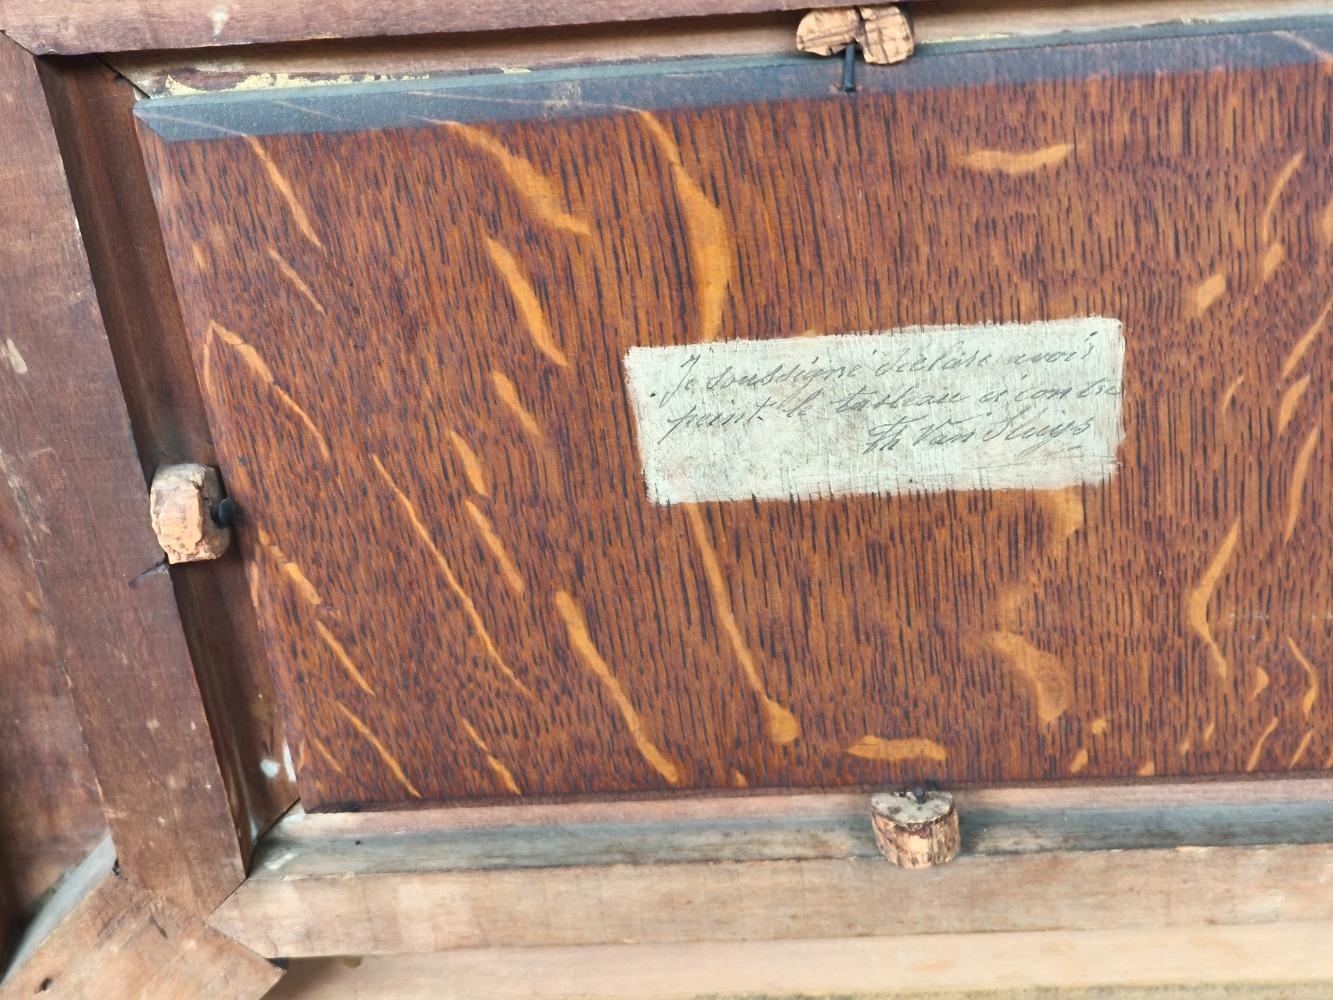 Je soussigné déclare avoir
peint le tableau ci contre
Th Van Sluys